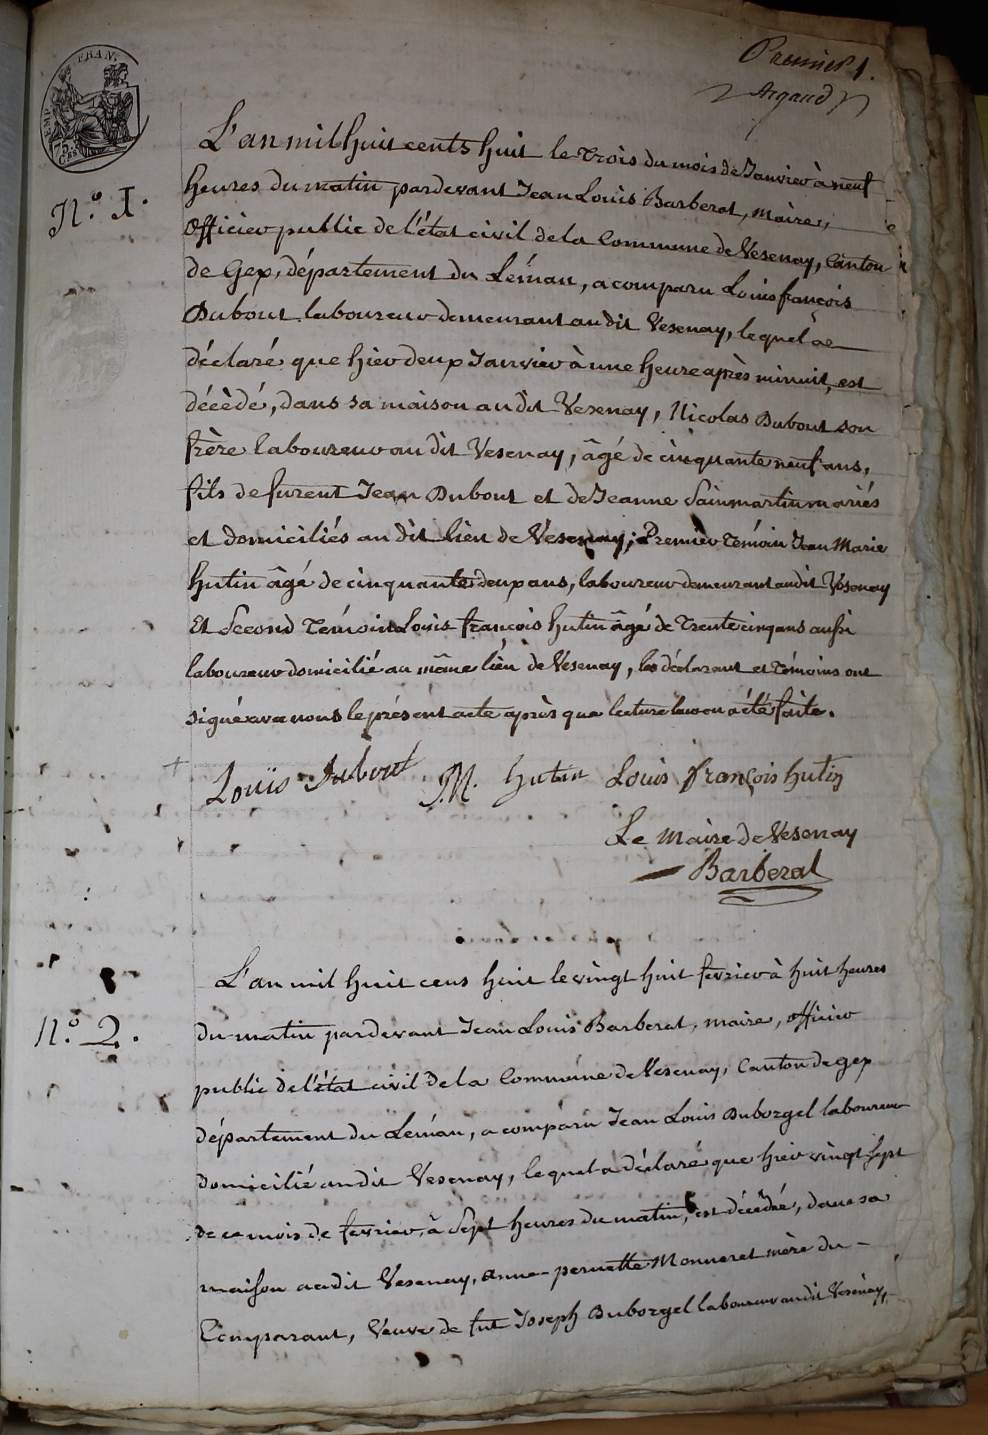 Premier 1.
Argand
EMP. FRAN.
75 Cs.
L'an mil huit cents huit le trois du mois de Janvier à neuf
N.° 1.
heures du matin pardevant Jean Louis Barberat, maire,
Officier public de l'état civil de la Commune de Vesenay, Canton
de Gex, département du Léman, a comparu Louis françois
Dubout laboureur demeurant au dit Vesenay, lequel a
déclaré que hier deux Janvier à une heure après minuit, est
décèdé, dans sa maison au dit Vesenay, Nicolas Dubout son
frère laboureur au dit Vesenay, âgé de cinquante neuf ans,
fils de furent Jean Dubout et de Jeanne Sainmartin mariés
et domiciliés au dit lieu de Vesenay; Premier témoin Jean Marie
hutin âgé de cinquante deux ans, laboureur demeurant audit Vesenay
Et Second témoin Louis françois hutin âgé de trente cinq ans aussi
laboureur domicilié au même lieu de Vesenay, les déclarant et témoins ont
signé avec nous le présent acte après que lecture leur en a été faite.
Louïs Dubout J.M. hutin Louis françois hutin
Le Maire de Vesenay
Barberat
L'an mil huit cens huit le vingt huit fevrier à huit heures
N.° 2.
du matin pardevant Jean Louis Barberat, maire, officier
public de l'état civil de la Commune de Vesenay, Canton de gex
département du Léman, a comparu Jean Louis Duborgel laboureur
domicilié audit Vesenay, lequel a déclaré que hier vingt sept
de ce mois de fevrier, à Sept heures du matin, est décèdée, dans sa
maison audit Vesenay, anne-pernette Monneret mère du
Comparant, Veuve de fut Joseph Duborgel laboureur audit Vesenay,